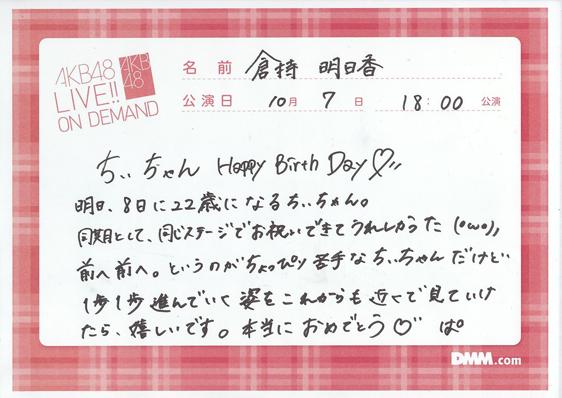 AKB48
LIVE!!
ON DEMAND
AKB
48
名前 倉持 明日香
公演日 10月 7日 18:00 公演
ちぃちゃん Happy Birth Day♡!!
明日、8日に22歳になるちぃちゃん。
同期として、同じステージでお祝いできてうれしかった(・ω・)、
前へ前へ。というのがちょっぴり苦手なちぃちゃんだけど
1歩1歩進んでいく姿をこれからも近くで見ていけ
たら、嬉しいです。本当におめでとう♡ ぱ。
DMM.com